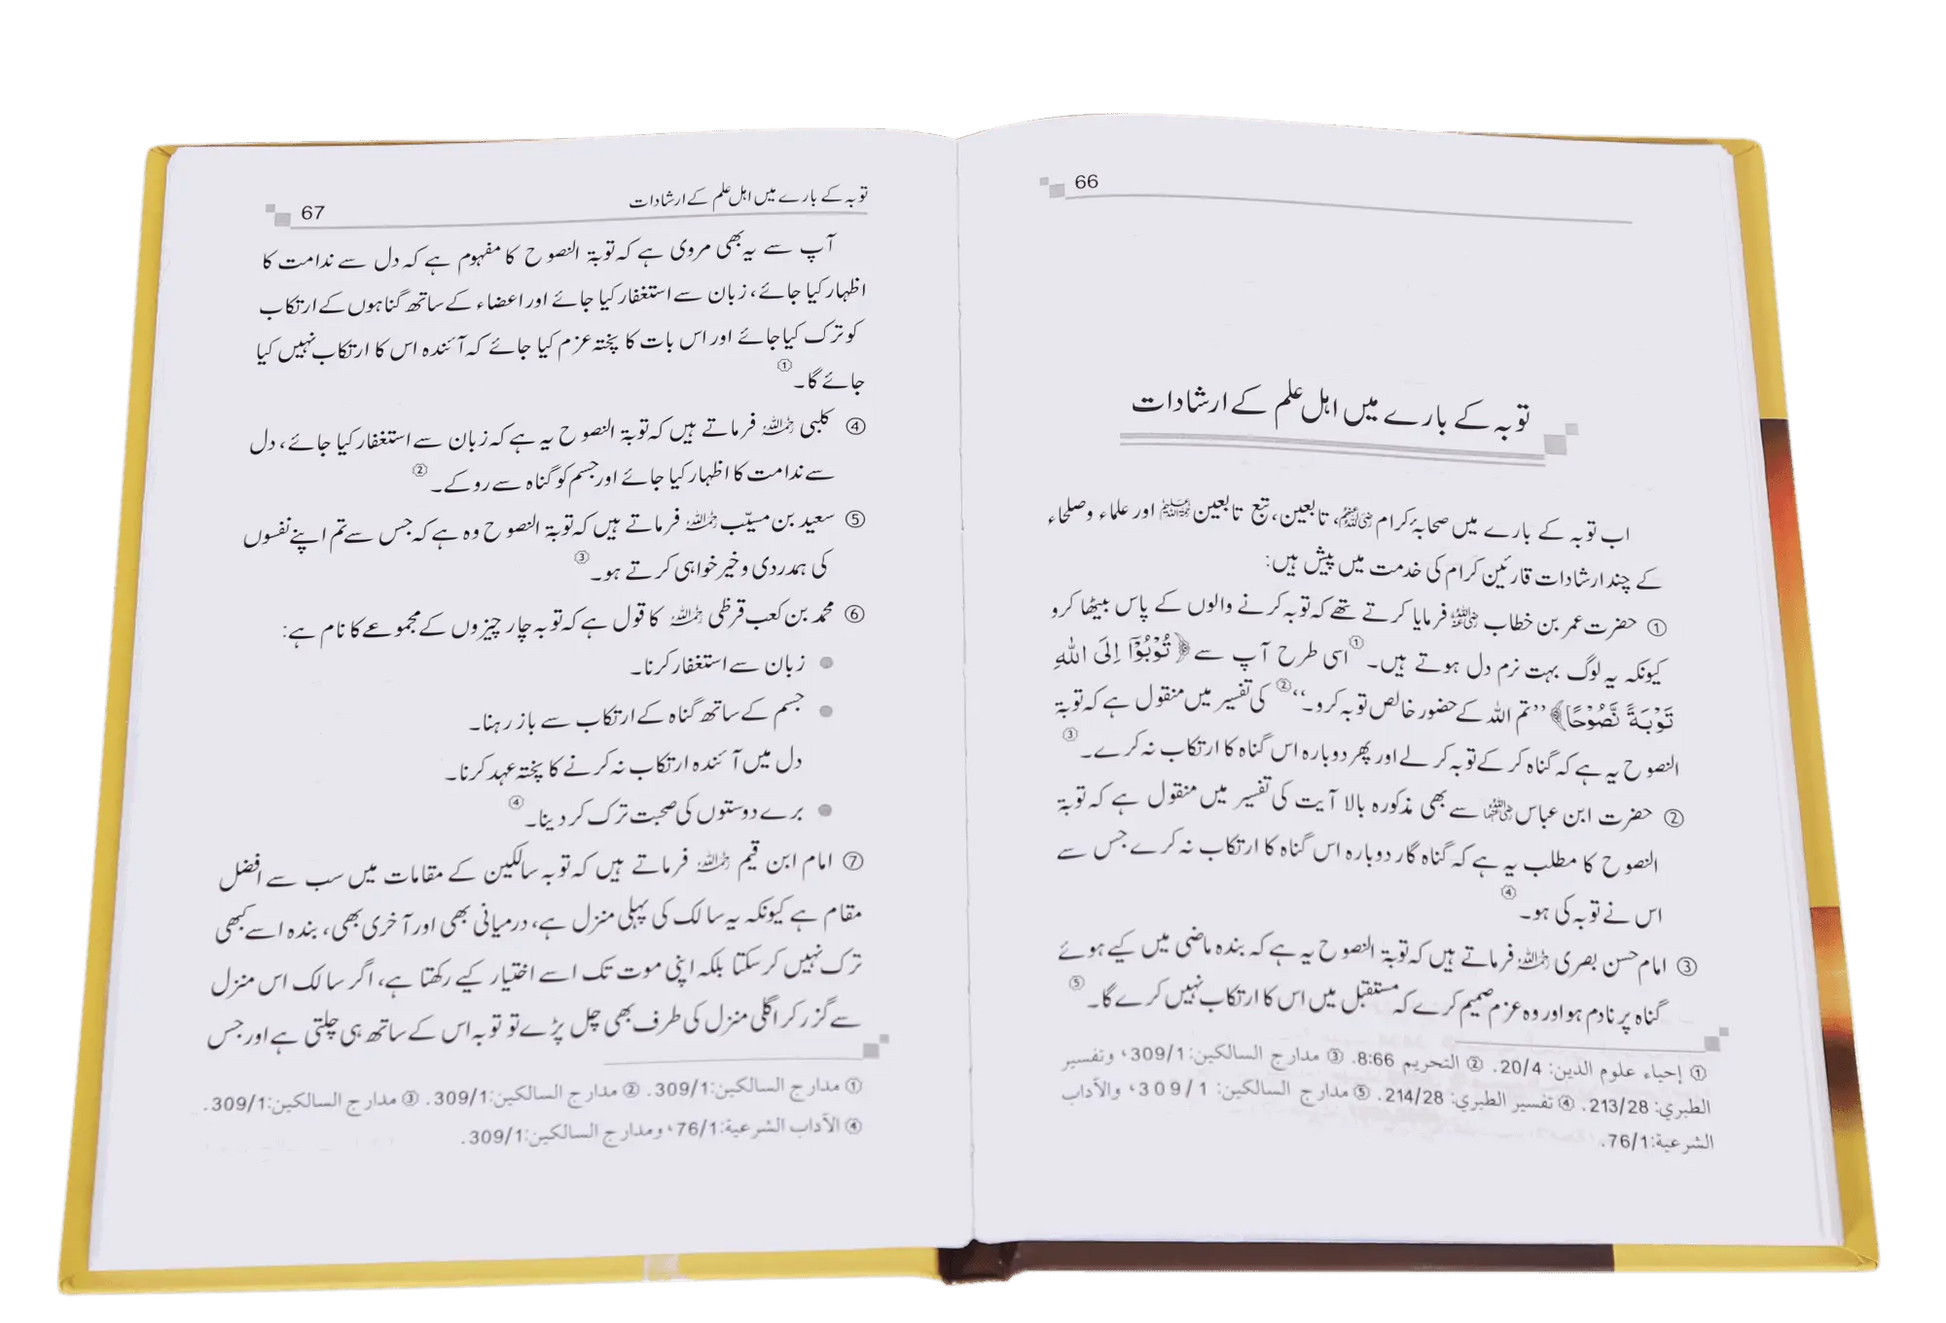 66
توبہ کے بارے میں اہل علم کے ارشادات
اب توبہ کے بارے میں صحابۂ کرام رضی اللہ عنہم، تابعین، تبع تابعین رحمۃ اللہ علیہم اور علماء وصلحاء
کے چند ارشادات قارئین کرام کی خدمت میں پیش ہیں:
① حضرت عمر بن خطاب رضی اللہ عنہ فرمایا کرتے تھے کہ توبہ کرنے والوں کے پاس بیٹھا کرو
کیونکہ یہ لوگ بہت نرم دل ہوتے ہیں۔① اسی طرح آپ سے ﴿تُوْبُوْۤا اِلَى اللّٰهِ
تَوْبَةً نَّصُوْحًا﴾ ’’تم اللہ کے حضور خالص توبہ کرو۔‘‘② کی تفسیر میں منقول ہے کہ توبۃ
النصوح یہ ہے کہ گناہ کر کے توبہ کر لے اور پھر دوبارہ اس گناہ کا ارتکاب نہ کرے۔③
② حضرت ابن عباس رضی اللہ عنہما سے بھی مذکورہ بالا آیت کی تفسیر میں منقول ہے کہ توبۃ
النصوح کا مطلب یہ ہے کہ گناہ گار دوبارہ اس گناہ کا ارتکاب نہ کرے جس سے
اس نے توبہ کی ہو۔④
③ امام حسن بصری رحمہ اللہ فرماتے ہیں کہ توبۃ النصوح یہ ہے کہ بندہ ماضی میں کیے ہوئے
گناہ پر نادم ہو اور وہ عزم صمیم کرے کہ مستقبل میں اس کا ارتکاب نہیں کرے گا۔⑤
① إحياء علوم الدين: 20/4. ② التحريم 8:66. ③ مدارج السالكين: 309/1، وتفسير
الطبري: 213/28. ④ تفسير الطبري: 214/28. ⑤ مدارج السالكين: 309/1، والآداب
الشرعية: 76/1.
توبہ کے بارے میں اہل علم کے ارشادات 67
آپ سے یہ بھی مروی ہے کہ توبۃ النصوح کا مفہوم ہے کہ دل سے ندامت کا
اظہار کیا جائے، زبان سے استغفار کیا جائے اور اعضاء کے ساتھ گناہوں کے ارتکاب
کو ترک کیا جائے اور اس بات کا پختہ عزم کیا جائے کہ آئندہ اس کا ارتکاب نہیں کیا
جائے گا۔①
④ کلبی رحمہ اللہ فرماتے ہیں کہ توبۃ النصوح یہ ہے کہ زبان سے استغفار کیا جائے، دل
سے ندامت کا اظہار کیا جائے اور جسم کو گناہ سے روکے۔②
⑤ سعید بن مسیّب رحمہ اللہ فرماتے ہیں کہ توبۃ النصوح وہ ہے کہ جس سے تم اپنے نفسوں
کی ہمدردی و خیرخواہی کرتے ہو۔③
⑥ محمد بن کعب قرظی رحمہ اللہ کا قول ہے کہ توبہ چار چیزوں کے مجموعے کا نام ہے:
● زبان سے استغفار کرنا۔
● جسم کے ساتھ گناہ کے ارتکاب سے باز رہنا۔
دل میں آئندہ ارتکاب نہ کرنے کا پختہ عہد کرنا۔
● برے دوستوں کی صحبت ترک کر دینا۔④
⑦ امام ابن قیم رحمہ اللہ فرماتے ہیں کہ توبہ سالکین کے مقامات میں سب سے افضل
مقام ہے کیونکہ یہ سالک کی پہلی منزل ہے، درمیانی بھی اور آخری بھی، بندہ اسے کبھی
ترک نہیں کرسکتا بلکہ اپنی موت تک اسے اختیار کیے رکھتا ہے، اگر سالک اس منزل
سے گزر کر اگلی منزل کی طرف بھی چل پڑے تو توبہ اس کے ساتھ ہی چلتی ہے اور جس
① مدارج السالكين: 309/1. ② مدارج السالكين: 309/1. ③ مدارج السالكين: 309/1.
④ الآداب الشرعية: 76/1، ومدارج السالكين: 309/1.